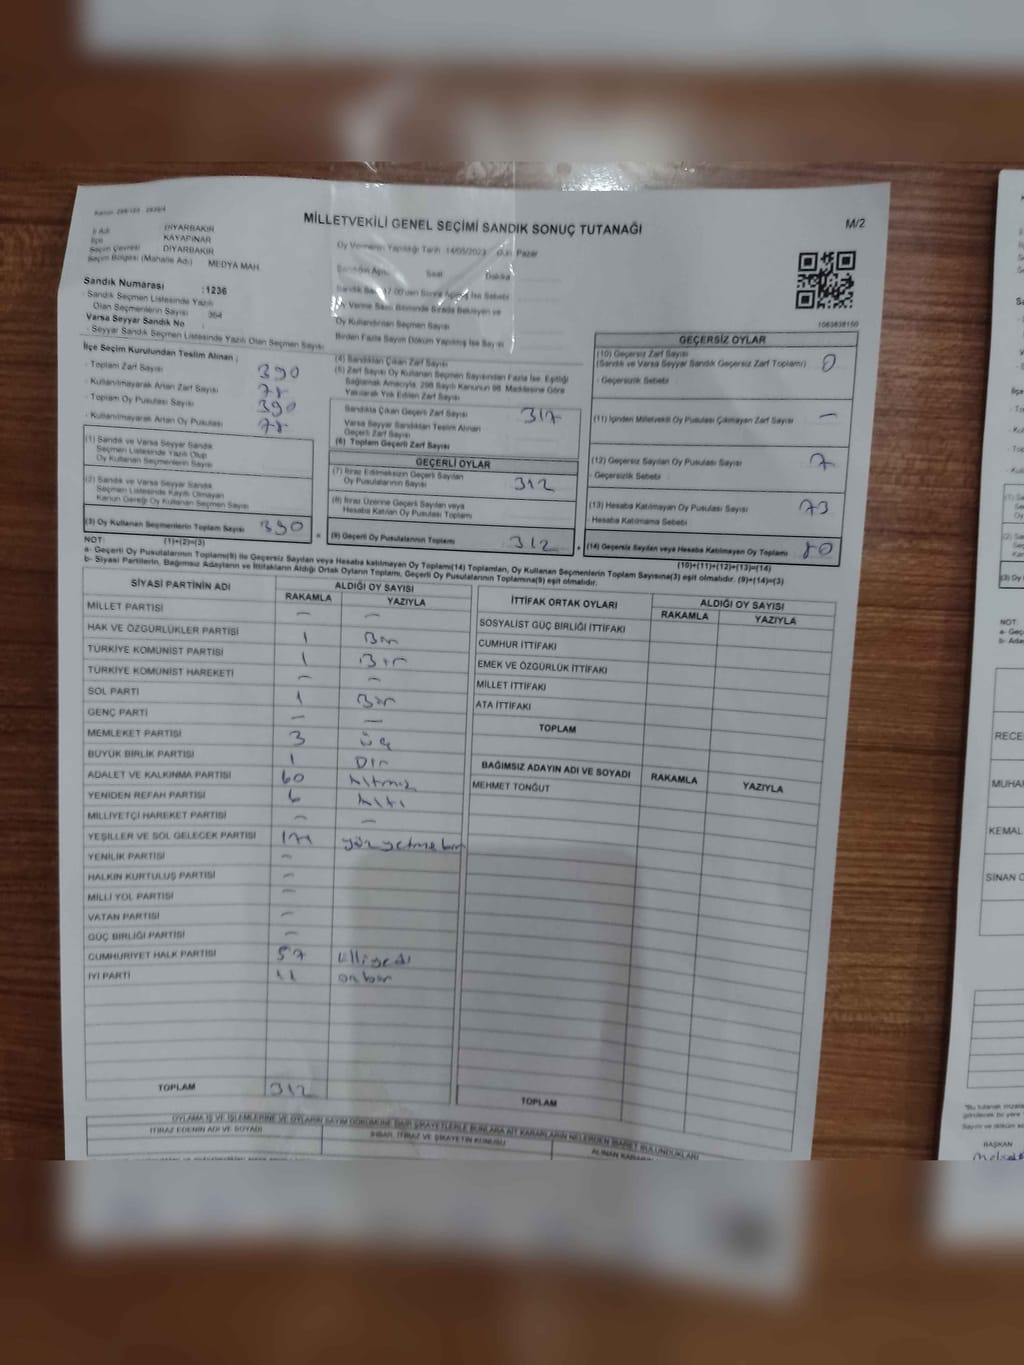 MİLLETVEKİLİ GENEL SEÇİMİ SANDIK SONUÇ TUTANAĞI
M/2
İli Adı DİYARBAKIR
İlçe KAYAPINAR
Seçim Çevresi DİYARBAKIR
Seçim Bölgesi (Mahalle Adı) MEDYA MAH.
Sandık Numarası :1236
Sandık Seçmen Listesinde Yazılı
Olan Seçmenlerin Sayısı 364
Varsa Seyyar Sandık No :
Seyyar Sandık Seçmen Listesinde Yazılı Olan Seçmen Sayısı
Oy Vermenin Yapıldığı Tarih 14/05/2023 Gün Pazar
Saat Dakika
Oy Kullandırılan Seçmen Sayısı
Birden Fazla Sayım Döküm Yapılmış İse Sayısı
1083838150
İlçe Seçim Kurulundan Teslim Alınan ;
- Toplam Zarf Sayısı 390
- Kullanılmayarak Artan Zarf Sayısı 78
- Toplam Oy Pusulası Sayısı 390
- Kullanılmayarak Artan Oy Pusulası 78
(1) Sandık ve Varsa Seyyar Sandık
Seçmen Listesinde Yazılı Olup
Oy Kullanan Seçmenlerin Sayısı
(2) Sandık ve Varsa Seyyar Sandık
Seçmen Listesinde Kayıtlı Olmayan
Kanun Gereği Oy Kullanan Seçmen Sayısı
(3) Oy Kullanan Seçmenlerin Toplam Sayısı 390
(1)+(2)=(3)
(4) Sandıktan Çıkan Zarf Sayısı
(5) Zarf Sayısı Oy Kullanan Seçmen Sayısından Fazla İse, Eşitliği
Sağlamak Amacıyla, 298 Sayılı Kanunun 98. Maddesine Göre
Yakılarak Yok Edilen Zarf Sayısı
Sandıkta Çıkan Geçerli Zarf Sayısı 317
Varsa Seyyar Sandıktan Teslim Alınan
Geçerli Zarf Sayısı
(6) Toplam Geçerli Zarf Sayısı
GEÇERLİ OYLAR
(7) İtiraz Edilmeksizin Geçerli Sayılan
Oy Pusulalarının Sayısı 312
(8) İtiraz Üzerine Geçerli Sayılan veya
Hesaba Katılan Oy Pusulası Toplamı
(9) Geçerli Oy Pusulalarının Toplamı 312
GEÇERSİZ OYLAR
(10) Geçersiz Zarf Sayısı
(Sandık ve Varsa Seyyar Sandık Geçersiz Zarf Toplamı) 0
- Geçersizlik Sebebi
(11) İçinden Milletvekili Oy Pusulası Çıkmayan Zarf Sayısı -
(12) Geçersiz Sayılan Oy Pusulası Sayısı 7
- Geçersizlik Sebebi
(13) Hesaba Katılmayan Oy Pusulası Sayısı 73
- Hesaba Katılmama Sebebi
(14) Geçersiz Sayılan veya Hesaba Katılmayan Oy Toplamı 80
(10)+(11)+(12)+(13)=(14)
NOT:
a- Geçerli Oy Pusulalarının Toplamı(9) ile Geçersiz Sayılan veya Hesaba katılmayan Oy Toplamı(14) Toplamları, Oy Kullanan Seçmenlerin Toplam Sayısına(3) eşit olmalıdır. (9)+(14)=(3)
b- Siyasi Partilerin, Bağımsız Adayların ve İttifakların Aldığı Ortak Oyların Toplamı, Geçerli Oy Pusulalarının Toplamına(9) eşit olmalıdır.
SİYASİ PARTİNİN ADI ALDIĞI OY SAYISI
RAKAMLA YAZIYLA
MİLLET PARTİSİ - -
HAK VE ÖZGÜRLÜKLER PARTİSİ 1 Bir
TÜRKİYE KOMÜNİST PARTİSİ 1 Bir
TÜRKİYE KOMÜNİST HAREKETİ - -
SOL PARTİ 1 Bir
GENÇ PARTİ - -
MEMLEKET PARTİSİ 3 üç
BÜYÜK BİRLİK PARTİSİ 1 Bir
ADALET VE KALKINMA PARTİSİ 60 Altmış
YENİDEN REFAH PARTİSİ 6 Altı
MİLLİYETÇİ HAREKET PARTİSİ - -
YEŞİLLER VE SOL GELECEK PARTİSİ 171 yüzyetmebir
YENİLİK PARTİSİ -
HALKIN KURTULUŞ PARTİSİ -
MİLLİ YOL PARTİSİ -
VATAN PARTİSİ -
GÜÇ BİRLİĞİ PARTİSİ -
CUMHURİYET HALK PARTİSİ 57 elliyedi
İYİ PARTİ 11 onbir
TOPLAM 312
İTTİFAK ORTAK OYLARI ALDIĞI OY SAYISI
RAKAMLA YAZIYLA
SOSYALİST GÜÇ BİRLİĞİ İTTİFAKI
CUMHUR İTTİFAKI
EMEK VE ÖZGÜRLÜK İTTİFAKI
MİLLET İTTİFAKI
ATA İTTİFAKI
TOPLAM
BAĞIMSIZ ADAYIN ADI VE SOYADI RAKAMLA YAZIYLA
MEHMET TONĞUT
TOPLAM
OYLAMA İŞ VE İŞLEMLERİNE VE OYLARIN SAYIM DÖKÜMÜNE DAİR ŞİKAYETLERLE BUNLARA AİT KARARLARIN NELERDEN İBARET BULUNDUKLARI
İTİRAZ EDENİN ADI VE SOYADI
İHBAR, İTİRAZ VE ŞİKAYETİN KONUSU
NOT:
RECE
MUHA
KEMAL
SİNAN
BAŞKAN